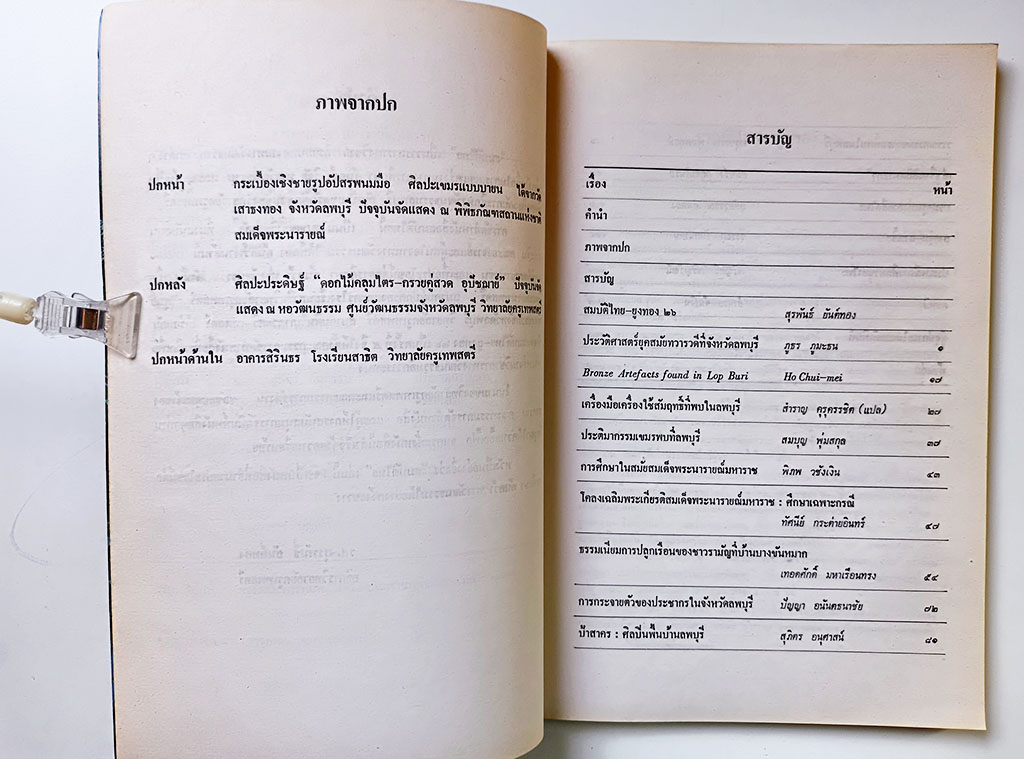 ภาพจากปก
ปกหน้า กระเบื้องเชิงชายรูปอัปสรพนมมือ ศิลปะเขมรแบบบายน ได้จากวัด
เสาธงทอง จังหวัดลพบุรี ปัจจุบันจัดแสดง ณ พิพิธภัณฑสถานแห่งชาติ
สมเด็จพระนารายณ์
ปกหลัง ศิลปะประดิษฐ์ “ดอกไม้คลุมไตร-กรวยคู่สวด อุปัชฌาย์” ปัจจุบันจัด
แสดง ณ หอวัฒนธรรม ศูนย์วัฒนธรรมจังหวัดลพบุรี วิทยาลัยครูเทพสตรี
ปกหน้าด้านใน อาคารสิรินธร โรงเรียนสาธิต วิทยาลัยครูเทพสตรี
สารบัญ
เรื่อง หน้า
คำนำ
ภาพจากปก
สารบัญ
สมบัติไทย-ยูงทอง ๒๖ สุรพันธ์ ยันต์ทอง
ประวัติศาสตร์ยุคสมัยทวารวดีที่จังหวัดลพบุรี ภูธร ภูมะธน ๑
Bronze Artefacts found in Lop Buri Ho Chui-mei ๑๗
เครื่องมือเครื่องใช้สัมฤทธิ์ที่พบในลพบุรี สำราญ คุรุครรชิต (แปล) ๒๗
ประติมากรรมเขมรพบที่ลพบุรี สมบุญ พุ่มสกุล ๓๗
การศึกษาในสมัยสมเด็จพระนารายณ์มหาราช พิภพ วชังเงิน ๔๓
โคลงเฉลิมพระเกียรติสมเด็จพระนารายณ์มหาราช : ศึกษาเฉพาะกรณี
ทัศนีย์ กระต่ายอินทร์ ๔๗
ธรรมเนียมการปลูกเรือนของชาวรามัญที่บ้านบางขันหมาก
เทอดศักดิ์ มหาเรือนทรง ๕๔
การกระจายตัวของประชากรในจังหวัดลพบุรี ปัญญา อนันตธนาชัย ๗๒
ป้าสาคร : ศิลปินพื้นบ้านลพบุรี สุภิตร อนุศาสน์ ๘๑